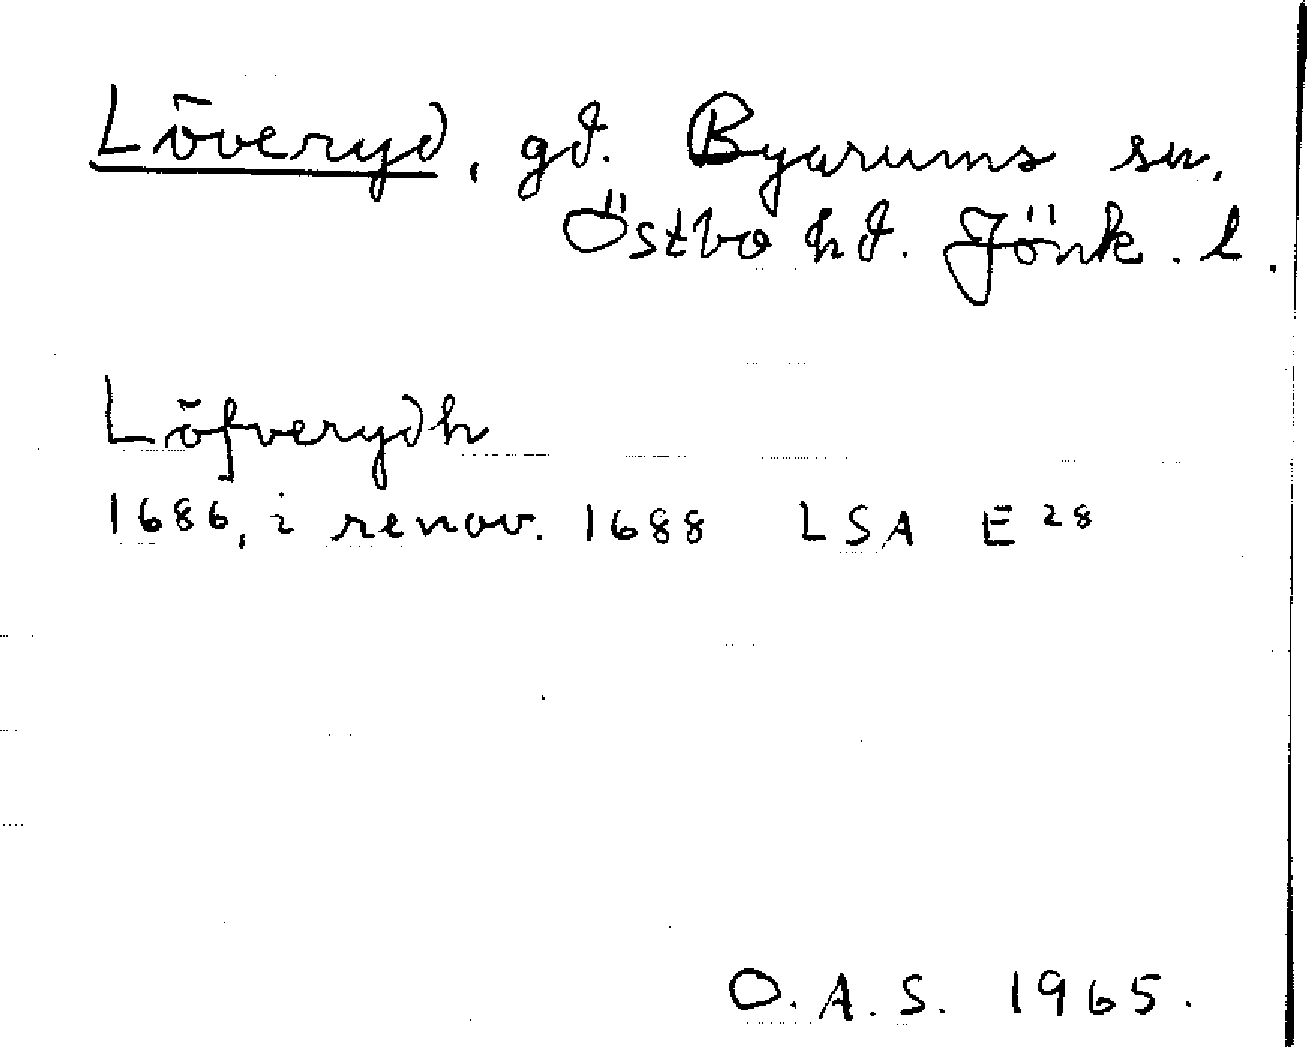 Löveryd, gd. Byarums sn.
Östbo hd. Jönk. l.
Löfverydh
1686, i renov. 1688 LSA E 28
O. A. S. 1965.